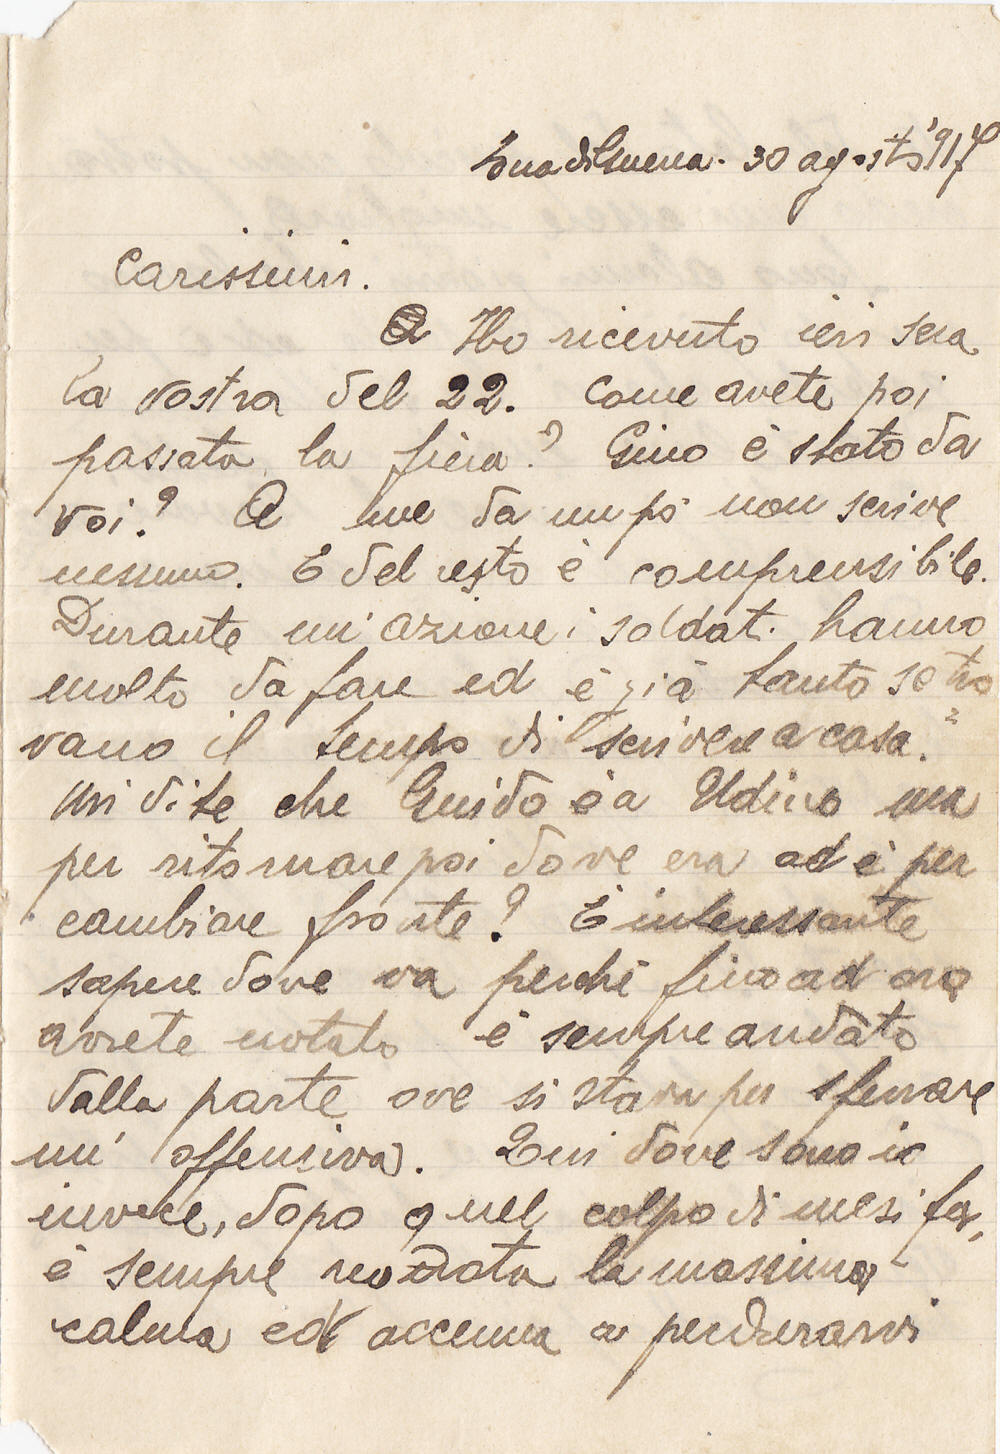 Zona di Guerra. 30 agosto '917
Carissimi.
Ho ricevuto ieri sera
la vostra del 22. Come avete poi
passata la fiera? Gino è stato da
voi? A me da un pò non scrive
nessuno. E del resto è comprensibile.
Durante un' azione i soldati hanno
molto da fare ed è già tanto se tro
vano il tempo di scrivere a casa.
Mi dite che Guido è a Udine ma
per ritornare poi dove era od è per
cambiare fronte? È interessante
sapere dove va perchè fino ad ora
avrete notato è sempre andato
dalla parte ove si stava per sferrare
un' offensiva. Qui dove sono io
invece, dopo quel colpo di mesi fa,
è sempre regnata la massima
calma ed accenna a perdurarvi